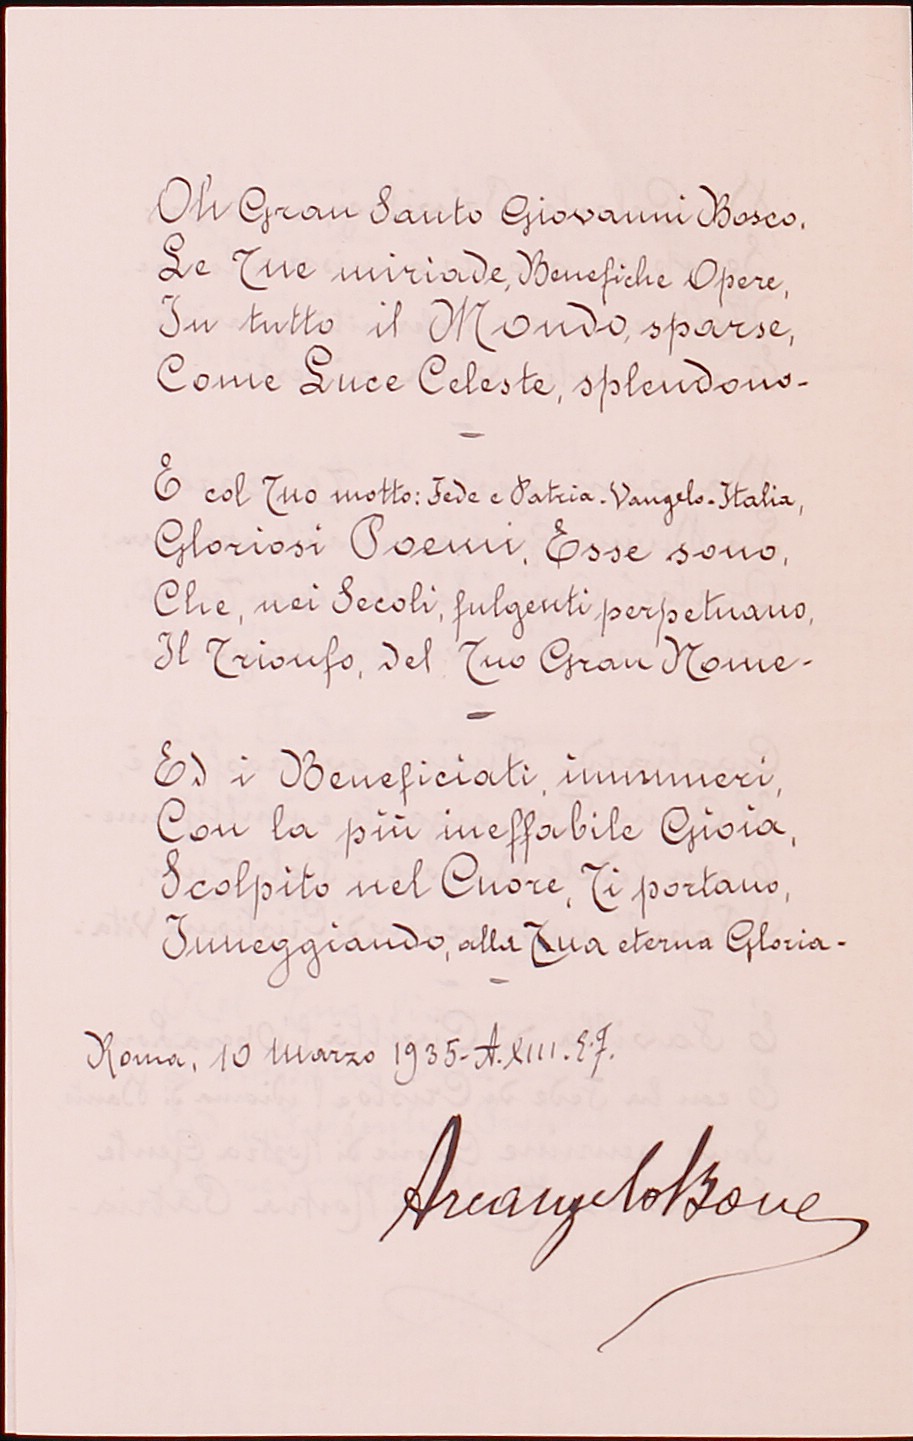 Oh Gran Santo Giovanni Bosco.
Le Tue miriade, Benefiche Opere,
In tutto il Mondo, sparse,
Come Luce Celeste, splendono-
-
E col Tuo motto: Fede e Patria-Vangelo-Italia,
Gloriosi Poemi, Esse sono,
Che, nei Secoli, fulgenti perpetuano,
Il Trionfo, del Tuo Gran Nome-
-
Ed i Beneficiati, innumeri,
Con la più ineffabile Gioia,
Scolpito nel Cuore, Ti portano,
Inneggiando, alla Tua eterna Gloria-
-
Roma, 10 Marzo 1935-A.XIII.E.F.
Arcangelo Bove